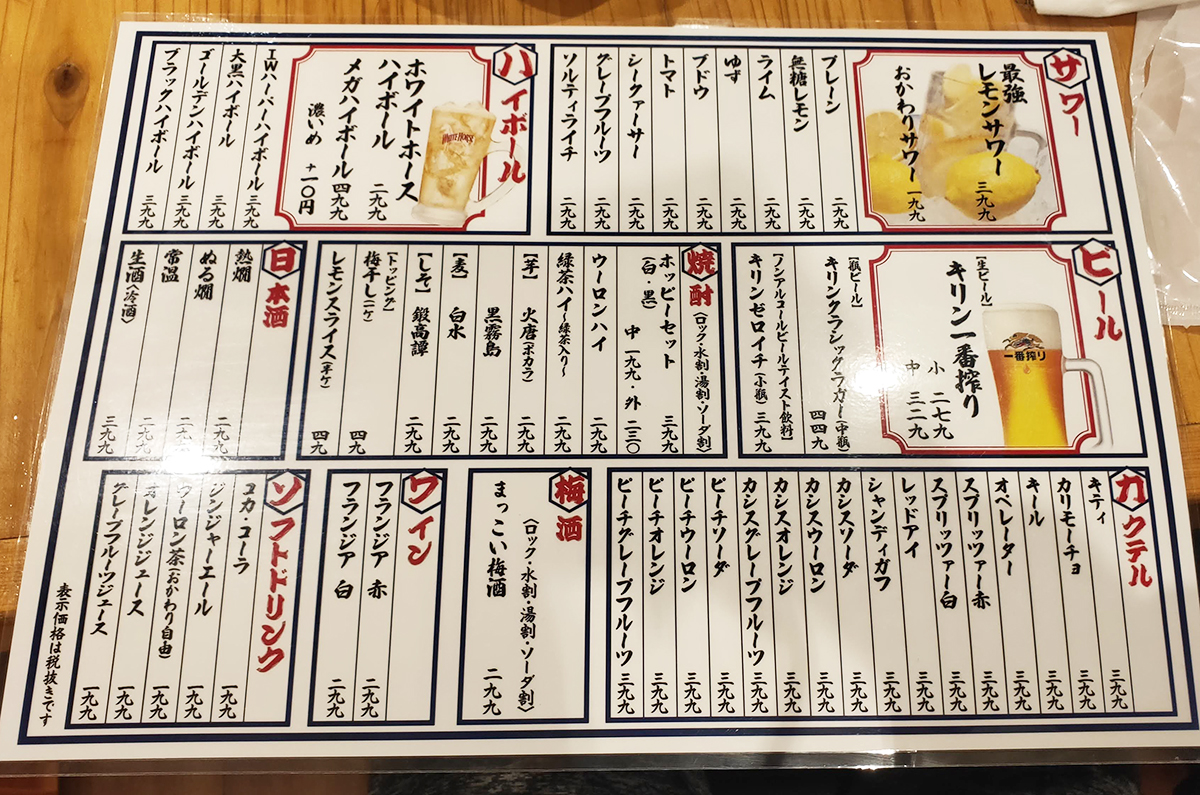 サワー
最強
レモンサワー 三九九
おかわりサワー 一九九
プレーン 二九九
無糖レモン 二九九
ライム 二九九
ゆず 二九九
ブドウ 二九九
トマト 二九九
シークァーサー 二九九
グレープフルーツ 二九九
ソルティライチ 二九九
ハイボール
ホワイトホース
ハイボール 二九九
メガハイボール 四九九
濃いめ +一〇円
WHITE HORSE
IWハーパーハイボール 三九九
大黒ハイボール 三九九
ゴールデンハイボール 三九九
ブラックハイボール 三九九
ビール
[生ビール]
キリン一番搾り
小 二七九
中 三二九
一番搾り
[瓶ビール]
キリンクラシックラガー(中瓶) 四四九
[ノンアルコールビールテイスト飲料]
キリンゼロイチ(小瓶) 三九九
焼酎(ロック・水割・湯割・ソーダ割)
ホッピーセット 三九九
(白・黒) 中 一九九・外 二三〇
ウーロンハイ 二九九
緑茶ハイ~緑茶入り~ 二九九
[芋] 火唐(ホカラ) 二九九
黒霧島 二九九
[麦] 白水 二九九
[しそ] 鍛高譚 二九九
[トッピング]
梅干し(二ケ) 四九
レモンスライス(半ケ) 四九
日本酒
熱燗 二九九
ぬる燗 二九九
常温 二九九
生酒(冷酒) 三九九
カクテル
キティ 三九九
カリモーチョ 三九九
キール 三九九
オペレーター 三九九
スプリッツァー赤 三九九
スプリッツァー白 三九九
レッドアイ 三九九
シャンディガフ 三九九
カシスソーダ 三九九
カシスウーロン 三九九
カシスオレンジ 三九九
カシスグレープフルーツ 三九九
ピーチソーダ 三九九
ピーチウーロン 三九九
ピーチオレンジ 三九九
ピーチグレープフルーツ 三九九
梅酒
(ロック・水割・湯割・ソーダ割)
まっこい梅酒 二九九
ワイン
フランジア 赤 二九九
フランジア 白 二九九
ソフトドリンク
コカ・コーラ 一九九
ジンジャーエール 一九九
ウーロン茶(おかわり自由) 一九九
オレンジジュース 一九九
グレープフルーツジュース 一九九
表示価格は税抜きです